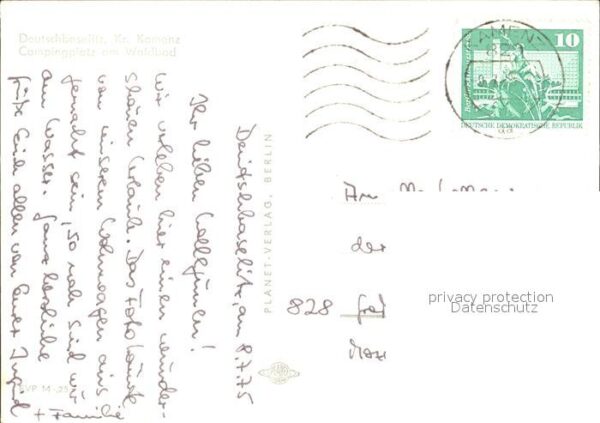 Deutschbaselitz, Kr. Kamenz
Campingplatz am Waldbad
Deutschbaselitz, am 8.7.75
Ihr lieben Kolleginnen!
Wir verleben hier einen wunder-
schönen Urlaub. Das Foto könnte
von unserem Wohnwagen aus
gemacht sein, so nah sind wir
am Wasser. Ganz herzliche
Grüße Euch allen von Eurer Ingrid
+ Familie
PLANET-VERLAG, BERLIN
10
DEUTSCHE DEMOKRATISCHE REPUBLIK
KAMENZ
An
der
828
privacy protection
Datenschutz